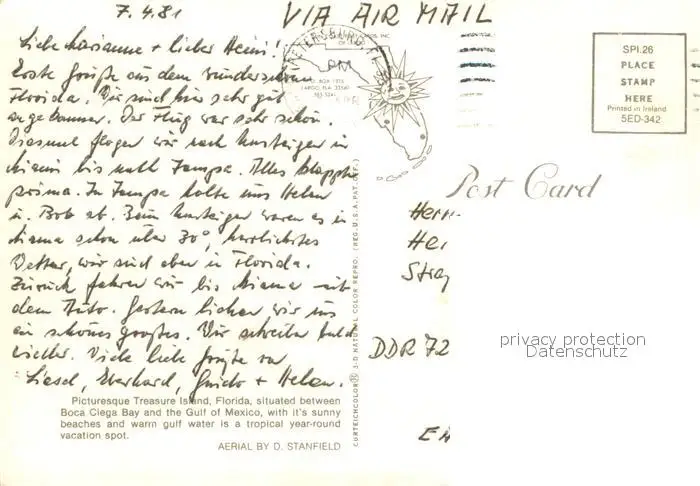 7.4.81
VIA AIR MAIL
Liebe Marianne + lieber Heini!
Erste Grüße aus dem wunderschönen
Florida. Wir sind hier sehr gut
angekommen. Der Flug war sehr schön.
Diesmal flogen wir nach Umsteigen in
Miami bis nach Tampa. Alles klappte
prima. In Tampa holte uns Helen
u. Bob ab. Beim Umsteigen waren es in
Miama schon über 30°, herrlichstes
Wetter, wir sind eben in Florida.
Zurück fahren wir bis Miama mit
dem Auto. Gestern liehen wir uns
ein schönes großes. Wir schreiben bald
wieder. Viele liebe Grüße von
Liesel, Eberhard, Guido + Helen.
Picturesque Treasure Island, Florida, situated between
Boca Ciega Bay and the Gulf of Mexico, with it's sunny
beaches and warm gulf water is a tropical year-round
vacation spot.
AERIAL BY D. STANFIELD
PETERSBURG, FL
PM
P.O. BOX 1376
LARGO, FLA. 33540
CURTEICHCOLOR® 3-D NATURAL COLOR REPRO. (REG. U.S.A. PAT. OFF.)
SPI.26
PLACE
STAMP
HERE
Printed in Ireland
5ED-342
Post Card
Herrn
Hei
DDR 72
privacy protection
Datenschutz